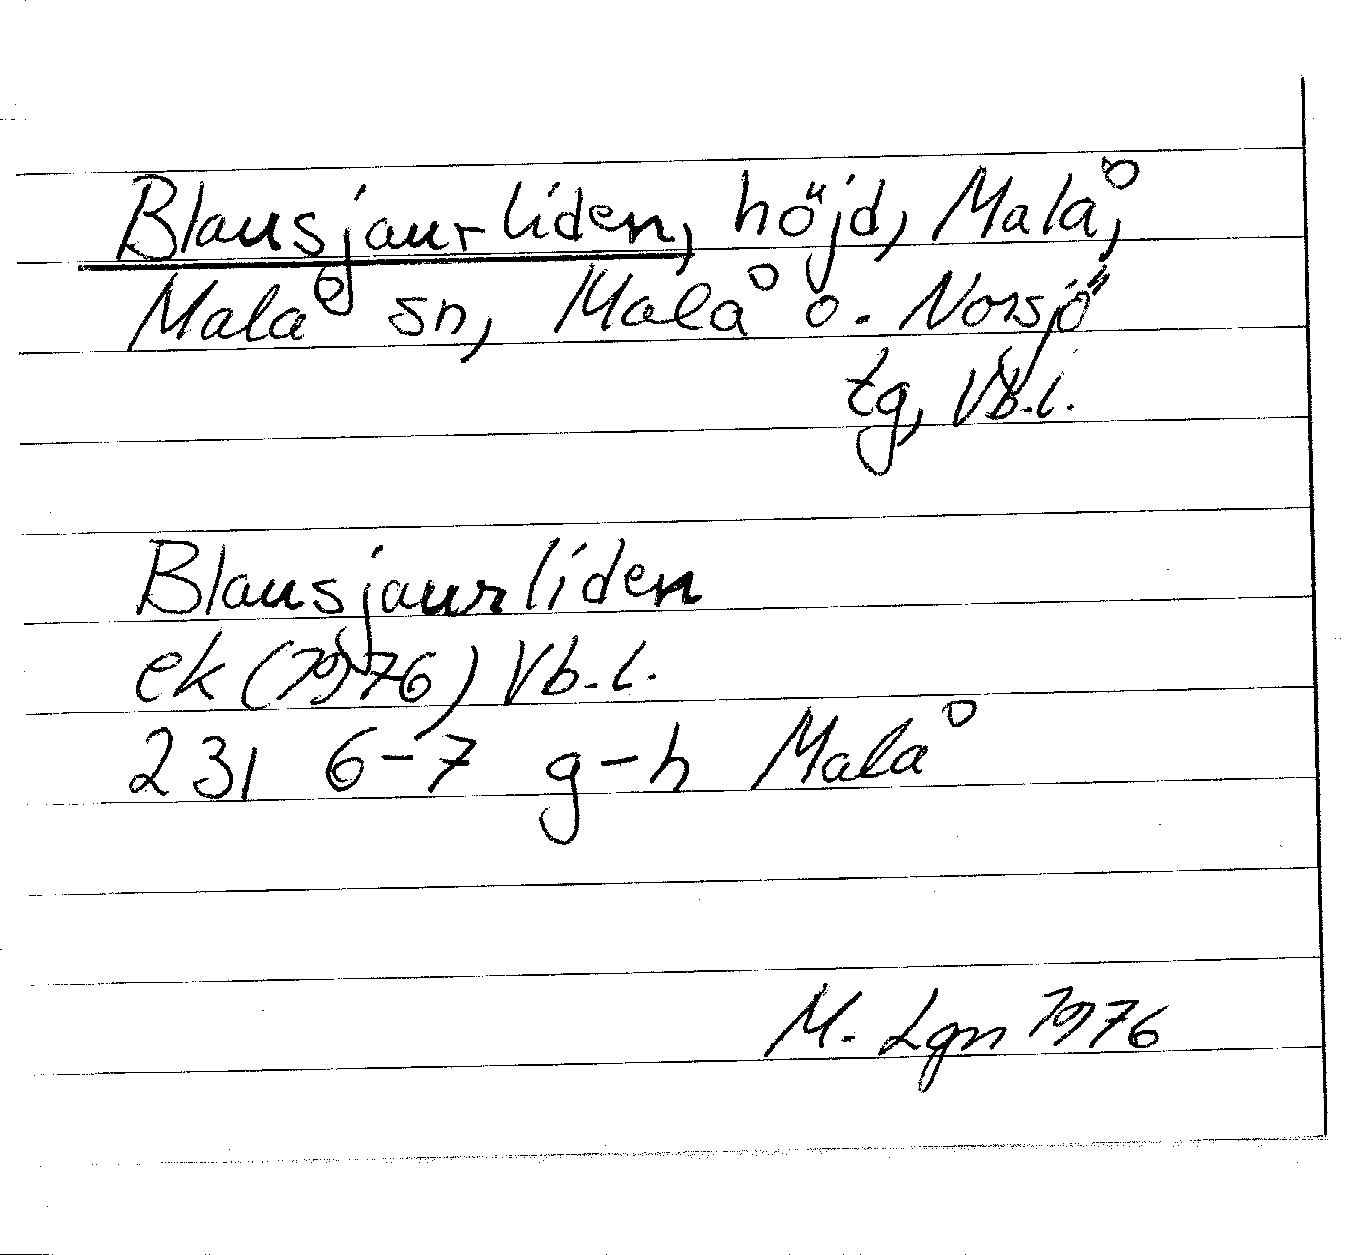 Blausjaurliden, höjd, Malå,
Malå sn, Malå o. Norsjö
tg, Vb.l.
Blausjaurliden
ek (1976) Vb.l.
231 6-7 g-h Malå
M. Lgn 1976